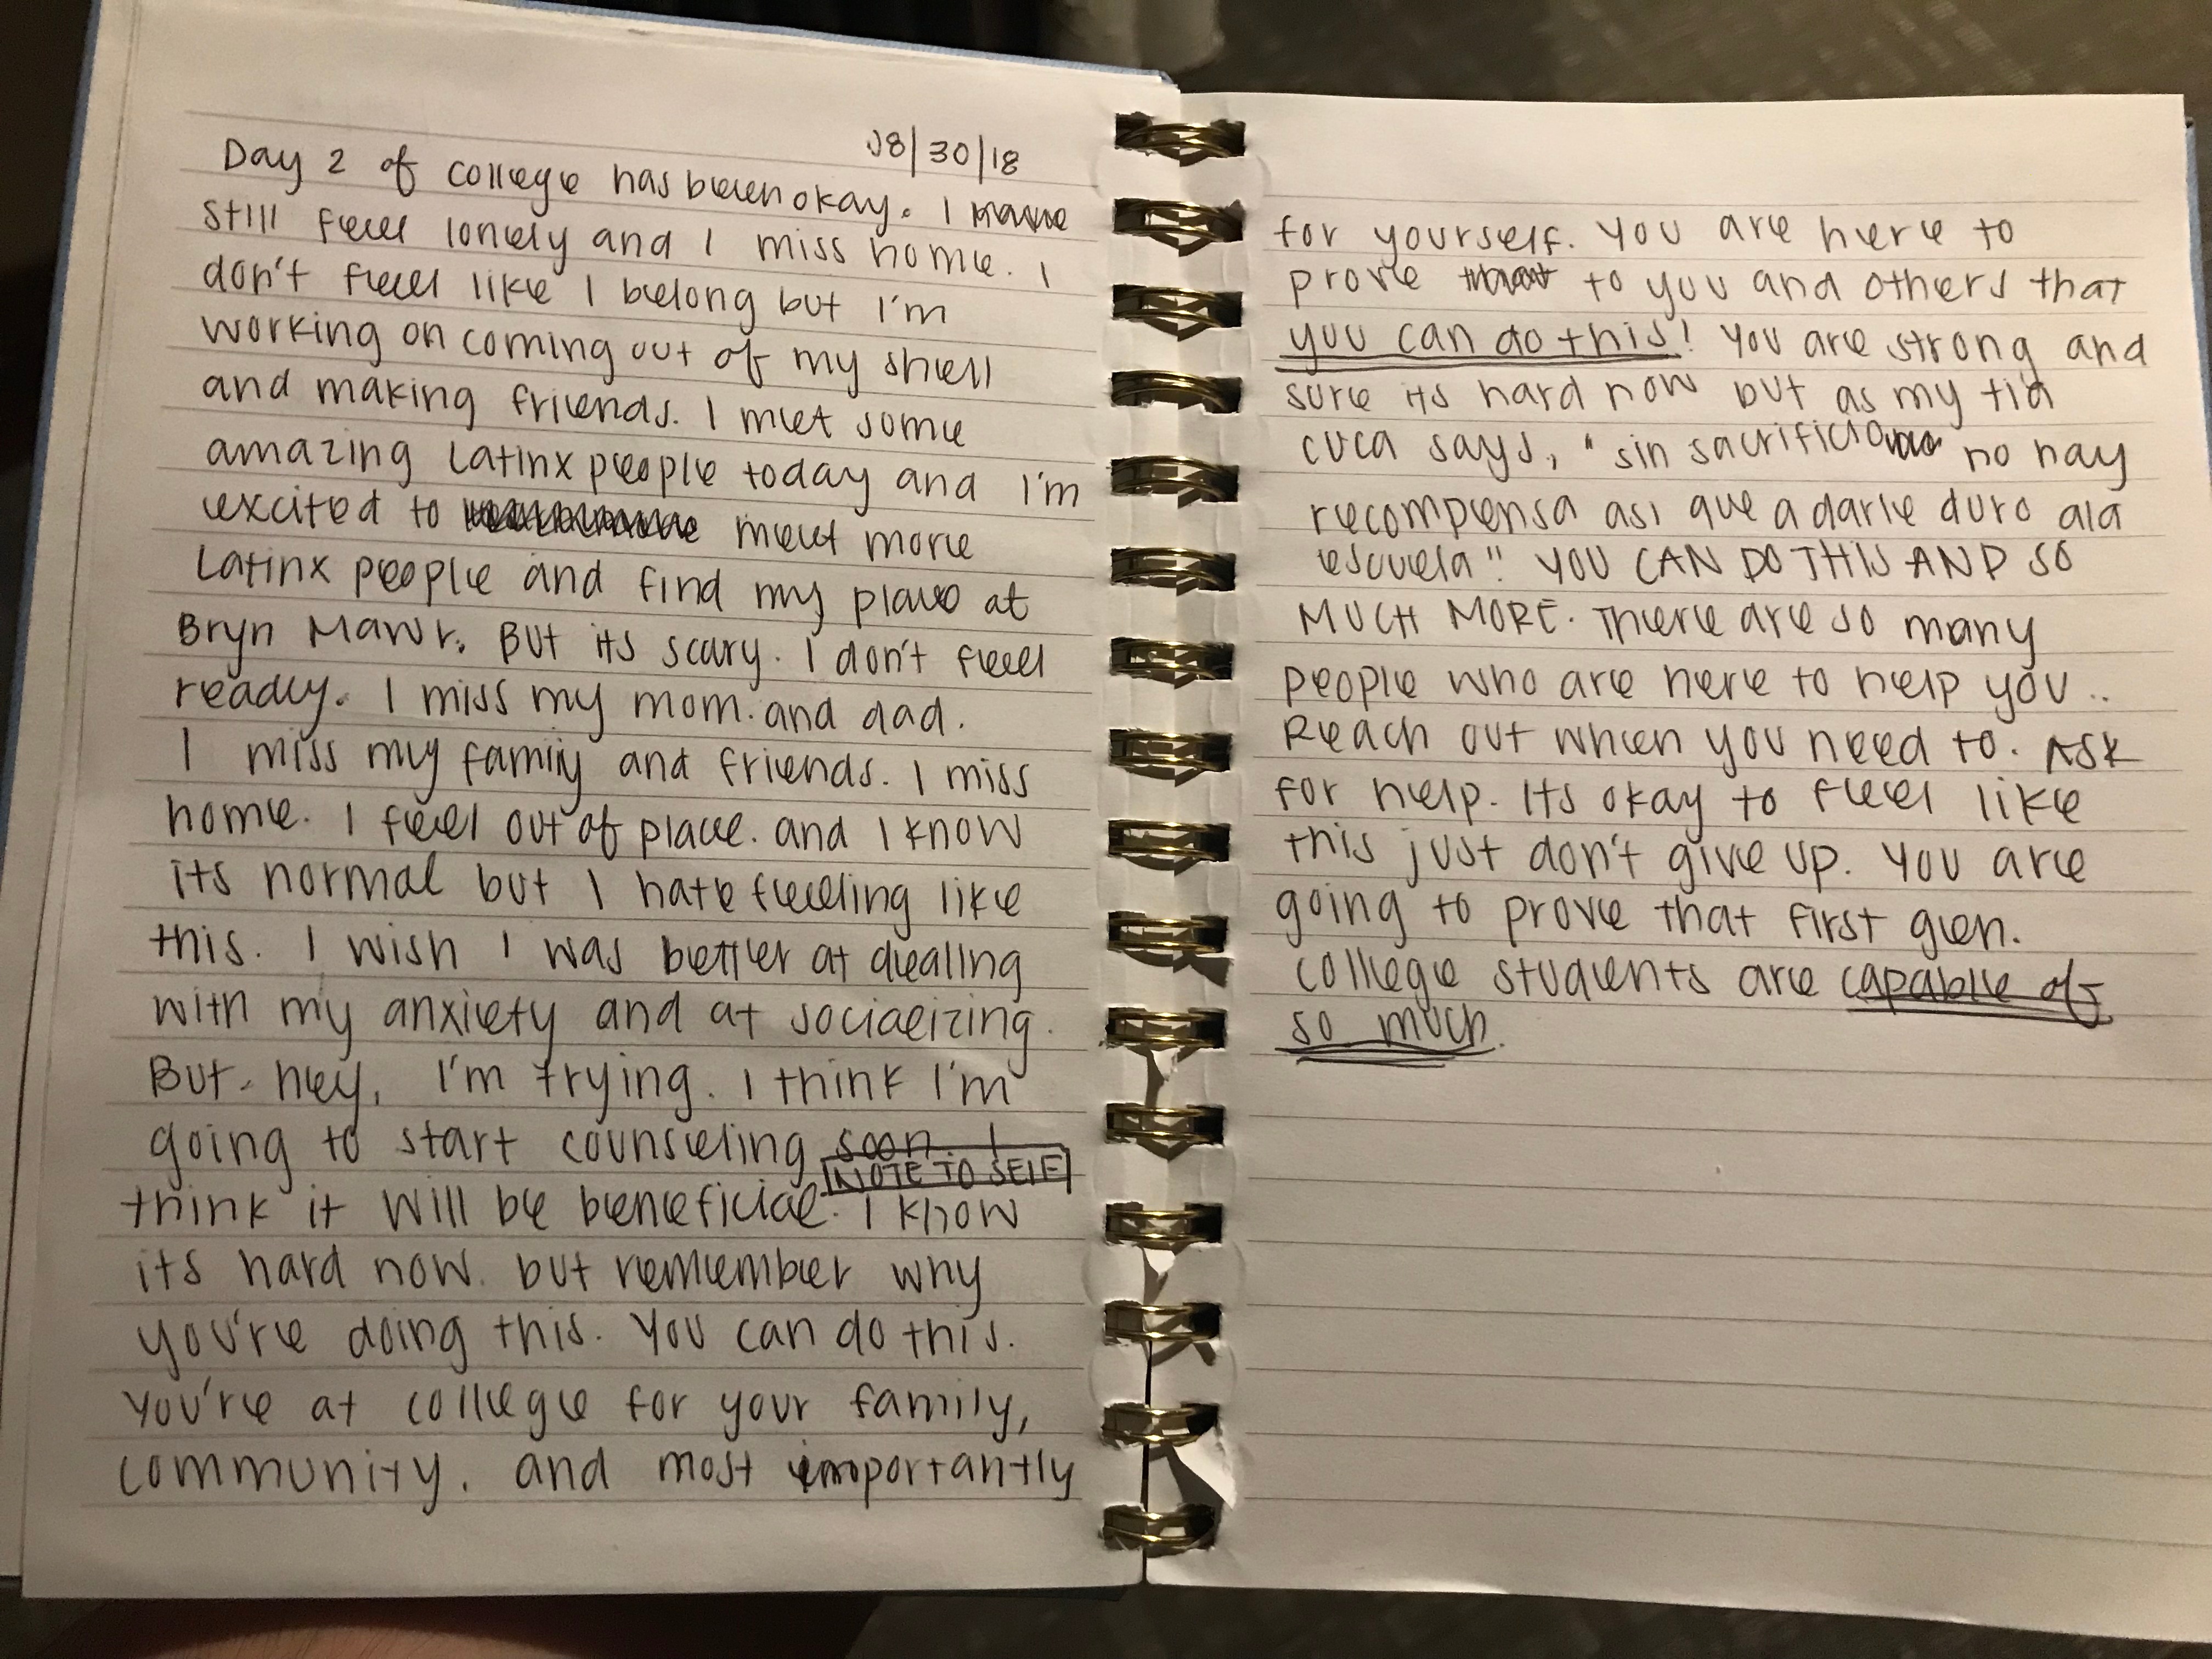 08/30/18
Day 2 of college has been okay. I
still feel lonely and I miss home. I
don't feel like I belong but I'm
working on coming out of my shell
and making friends. I met some
amazing Latinx people today and I'm
excited to meet more
Latinx people and find my place at
Bryn Mawr. But its scary. I don't feel
ready. I miss my mom. and dad.
I miss my family and friends. I miss
home. I feel out of place. and I know
its normal but I hate feeling like
this. I wish I was better at dealing
with my anxiety and at socializing.
But. hey, I'm trying. I think I'm
going to start counseling soon. I
NOTE TO SELF
think it will be beneficial. I know
its hard now. but remember why
you're doing this. You can do this.
You're at college for your family,
community. and most importantly
for yourself. You are here to
prove that to you and others that
you can do this! You are strong and
sure its hard now but as my tia
cuca says, "sin sacrificio no hay
recompensa asi que a darle duro ala
escuela" YOU CAN DO THIS AND SO
MUCH MORE. There are so many
people who are here to help you..
Reach out when you need to. Ask
for help. Its okay to feel like
this just don't give up. You are
going to prove that first gen.
college students are capable of
so much.